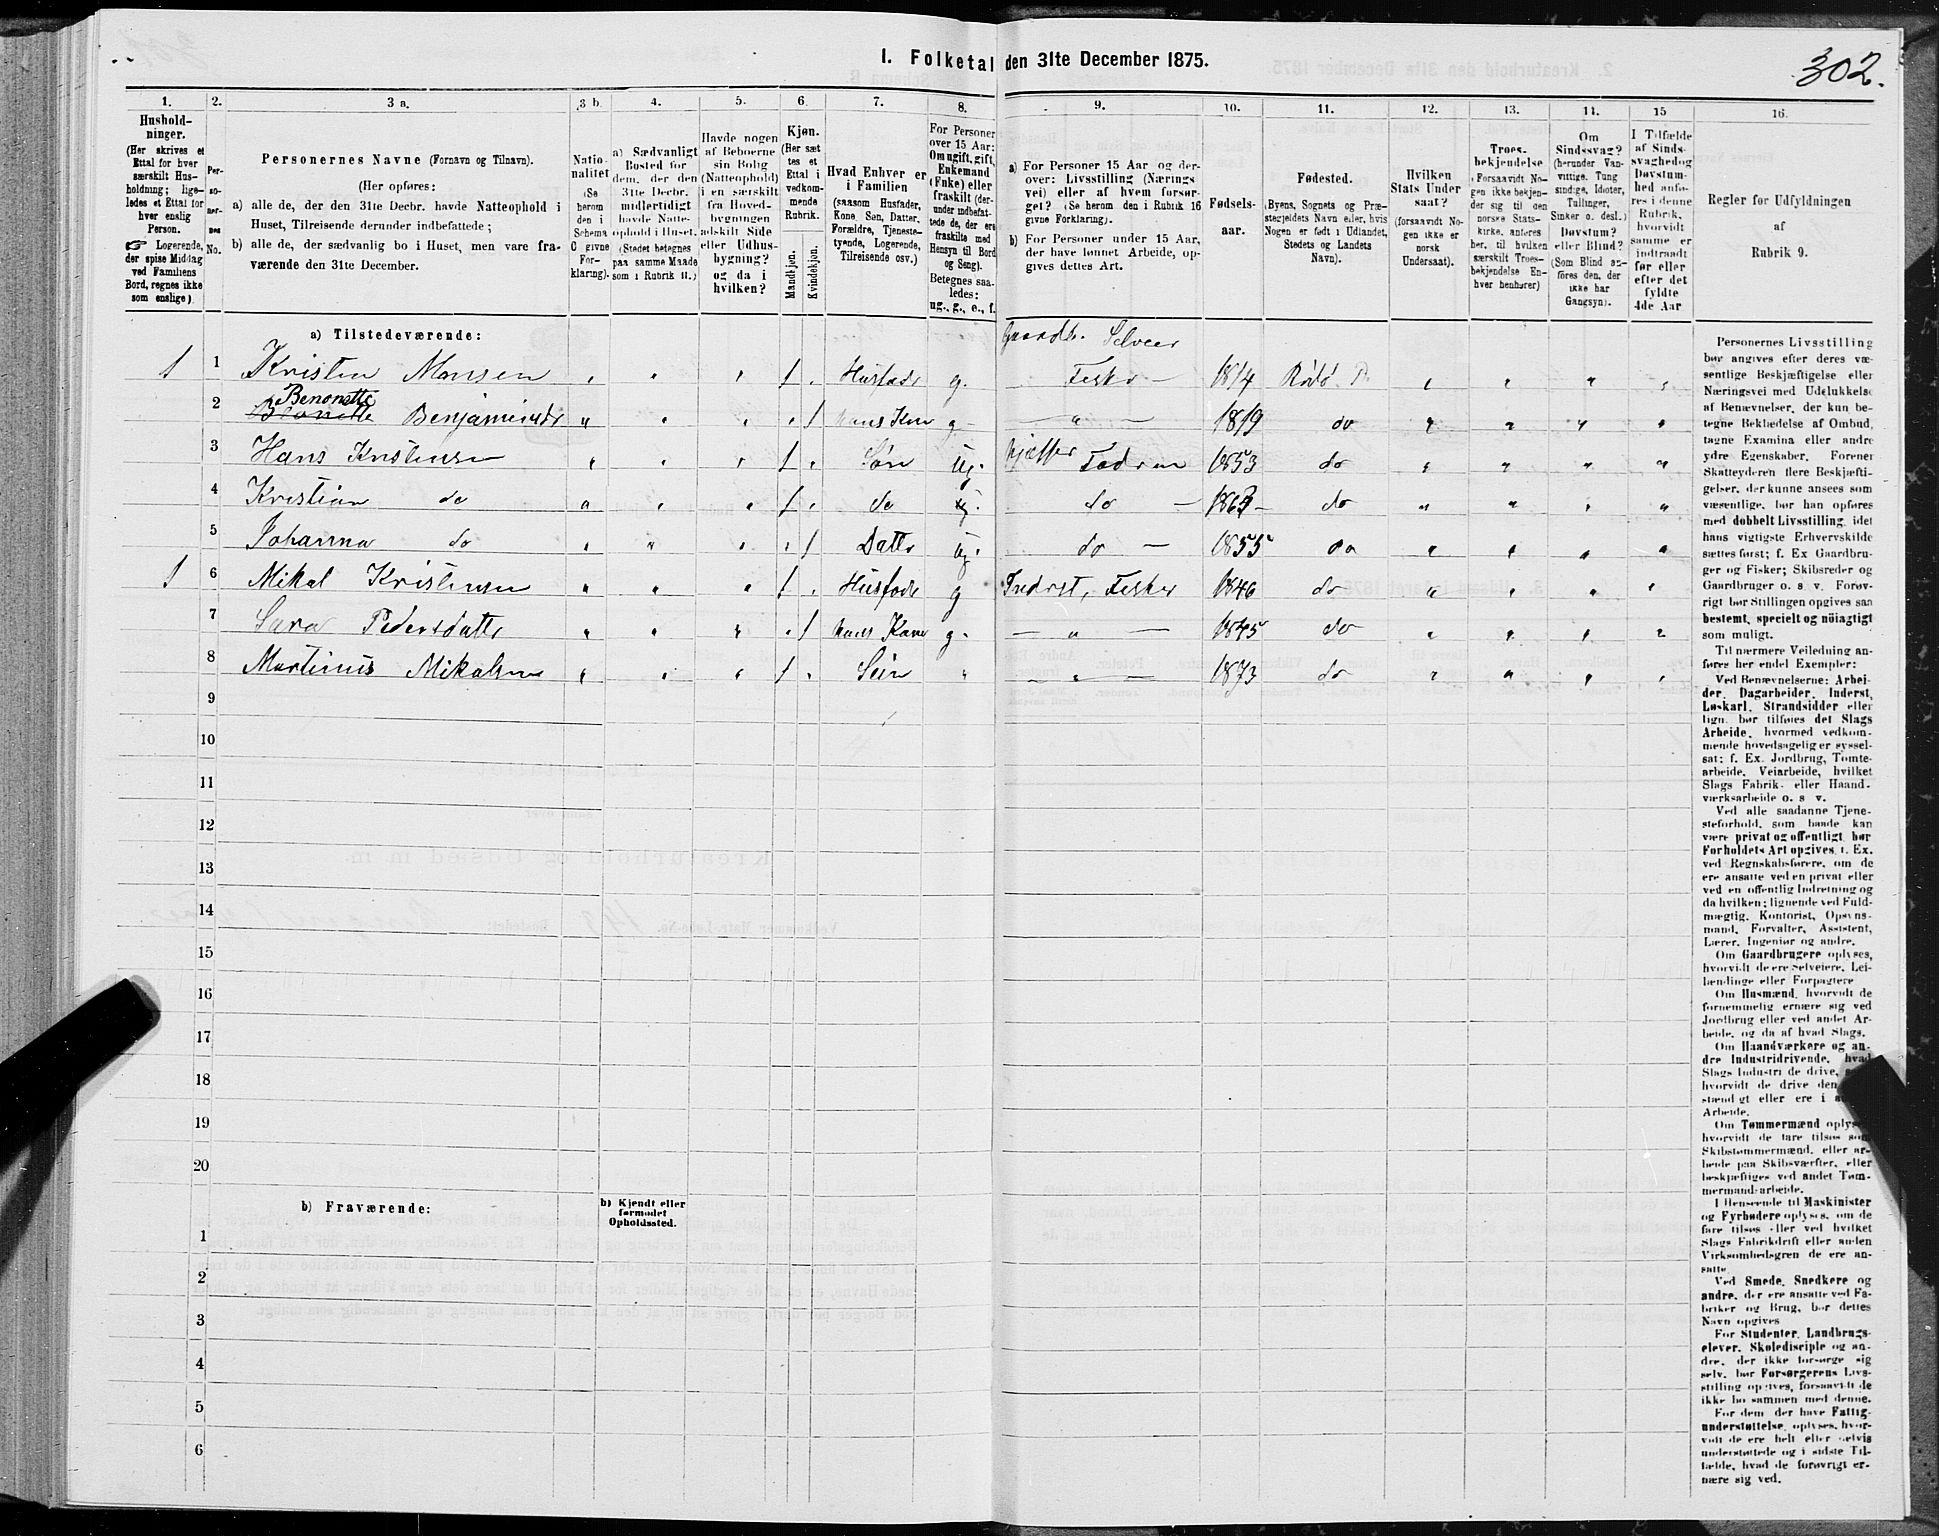 302.
1. Folketal den 31te December 1875.
1. 2. 3 a. 3 b. 4. 5. 6. 7. 8. 9. 10. 11. 12. 13. 14. 15 16.
Hushold-
ninger.
(Her skrives et
Ettal for hver
særskilt Hus-
holdning; lige-
ledes et Ettal for
hver enslig
Person.
☞ Logerende,
der spise Middag
ved Familiens
Bord, regnes ikke
som enslige).
Per-
so-
ner-
nes
No.
Personernes Navne (Fornavn og Tilnavn).
(Her opføres:
a) alle de, der den 31te Decbr. havde Natteophold i
Huset, Tilreisende derunder indbefattede;
b) alle de, der sædvanlig bo i Huset, men vare fra-
værende den 31te December.
Natio-
nalitet
(Se
herom
den i
Schema
C givne
For-
klaring).
a) Sædvanligt
Bosted for
dem, der den
31te Decbr.
midlertidigt
havde Natte-
ophold i Huset.
(Stedet betegnes
paa samme Maade
som i Rubrik 11.)
Havde nogen
af Beboerne
sin Bolig
(Natteophold)
i en særskilt
fra Hoved-
bygningen
adskilt Side
eller Udhus-
bygning?
og da i
hvilken?
Kjøn.
(Her sæt
tes et
Ettal i
vedkom-
mende
Rubrik.
Mandkjøn.
Kvindekjøn.
Hvad Enhver er
i Familien
(saasom Husfader,
Kone, Søn, Datter,
Forældre, Tjeneste-
tyende, Logerende,
Tilreisende osv.)
For Personer
over 15 Aar:
Om ugift, gift,
Enkemand
(Enke) eller
fraskilt (der-
under indbefat-
tede de, der ere
fraskilte med
Hensyn til Bord
og Seng).
Betegnes saa-
ledes:
ug., g., e., f.
a) For Personer 15 Aar og der-
over: Livsstilling (Nærings
vei) eller af hvem forsør-
get? (Se herom den i Rubrik 16
givne Forklaring).
b) For Personer under 15 Aar,
der have lønnet Arbeide, op-
gives dettes Art.
Fødsels-
aar.
Fødested.
(Byens, Sognets og Præ-
stegjeldets Navn eller, hvis
Nogen er født i Udlandet,
Stedets og Landets
Navn).
Hvilken
Stats Under
saat?
(forsaavidt No-
gen ikke er
norsk
Undersaat).
Troes-
bekjendelse
(Forsaavidt No-
gen ikke bekjen-
der sig til den
norske Stats-
kirke, anføres
her, til hvilken
særskilt Troes-
bekjendelse En-
hver henhører)
Om
Sindssvag?
(herunder Van-
vittige, Tung
sindige, Idioter,
Tullinger,
Sinker o. desl.)
Døvstum?
eller Blind?
(Som Blind an-
føres den, der
ikke har
Gangsyn).
I Tilfælde
af Sinds-
svaghed og
Døvstum-
hed anfø-
res i denne
Rubrik,
hvorvidt
samme er
indtraadt
før eller
efter det
fyldte
4de Aar
Regler før Udfyldningen
af
Rubrik 9.
a) Tilstedeværende:
Gaardb. Selveer
1 1 Kristen Monsen Husfader g. Fisker 1814 Rödö
2 Benonette Benjaminsdtr hans Kone g. 1819 do
3 Hans Kristensen Søn ug. hjælper Faderen 1853 do
4 Kristian do do do 1863 do
5 Johanna do Datter ug. do 1855 do
1 6 Mikal Kristensen Husfader g Inderst, Fisker 1846 do
7 Sara Pedersdatter hans Kone g. 1845 do
8 Martinus Mikalsen Søn 1873 do
9
10
11
12
13
14
15
16
17
18
19
20
b) Fraværende:
b) Kjendt eller
formodet
Opholdssted.
1
2
3
4
5
6
Personernes Livsstilling
bør angives efter deres væ-
sentlige Beskjæftigelse eller
Næringsvei med Udelukkelse
af Benævnelser, der kun be-
tegne Beklædelse af Ombud,
tagne Examina eller andre
ydre Egenskaber. Forener
Skatteyderen flere Beskjæfti-
gelser, der kunne ansees som
væsentlige, bør han opføres
med dobbelt Livsstilling, idet
hans vigtigste Erhvervskilde
sættes først; f. Ex Gaardbru-
ger og Fisker; Skibsreder og
Gaardbruger o. s. v. Forøv-
rigt bør Stillingen opgives saa
bestemt, specielt og nöiagtigt
som muligt.
Til nærmere Veiledning an-
føres her endel Exempler:
Ved Benævnelserne: Arbei-
der, Dagarbeider, Inderst,
Løskarl, Strandsidder eller
lign. bør tilføies det Slags
Arbeide, hvormed vedkom-
mende hovedsagelig er syssel-
sat; f. Ex. Jordbrug, Tomte-
arbeide, Veiarbeide, hvilket
Slags Fabrik- eller Haand-
værksarbeide o. s v.
Ved alle saadanne Tjene-
steforhold, som baade kan
være privat og offentligt, bør
Forholdets Art opgives, f. Ex.
ved Regnskabsførere, om de
ere ansatte ved en privat eller
ved en offentlig Indretning og
da hvilken; lignende ved Fuld-
mægtig, Kontorist, Opsyns-
mand, Forvalter, Assistent,
Lærer, Ingeniør og andre.
Om Gaardbrugere oplyses,
hvorvidt de ere Selveiere, Lei-
lændinge eller Forpagtere
Om Husmænd, hvorvidt de
fornemmelig ernære sig ved
Jordbrug eller ved andet Ar-
beide, og da af hvad Slags.
Om Haandværkere og an-
dre Industridrivende, hvad
Slags Industri de drive,
hvorvidt de drive den
stændigt eller ere i
Arbeide.
Om Tømmermænd oplyses
hvorvidt de fare tilsøs som
Skibstømmermænd, eller ar-
beide paa Skibsværfter, eller
beskjæftiges ved andet Tøm-
mermandsarbeide.
I Henseende til Maskinister
og Fyrbødere oplyses, om de
fare tilsøs eller ved hvilket
Slags Fabrikdrift eller anden
Virksomhedsgren de ere an-
satte.
Ved Smede, Snedkere og
andre, der ere ansatte ved Fa-
briker og Brug, bør dettes
Navn opgives
For Studenter, Landbrugs-
elever, Skoledisciple og an-
dre, der ikke forsørge sig
selv, bør Forsørgerens Livs-
stilling opgives, forsaavidt de
ikke bo sammen med denne.
For dem, der have Fattig-
understøttelse, oplyses, hvor-
vidt de ere helt eller delvis
understøttede og i sidste Til-
fælde, hvad de forøvrigt er-
nære sig ved.